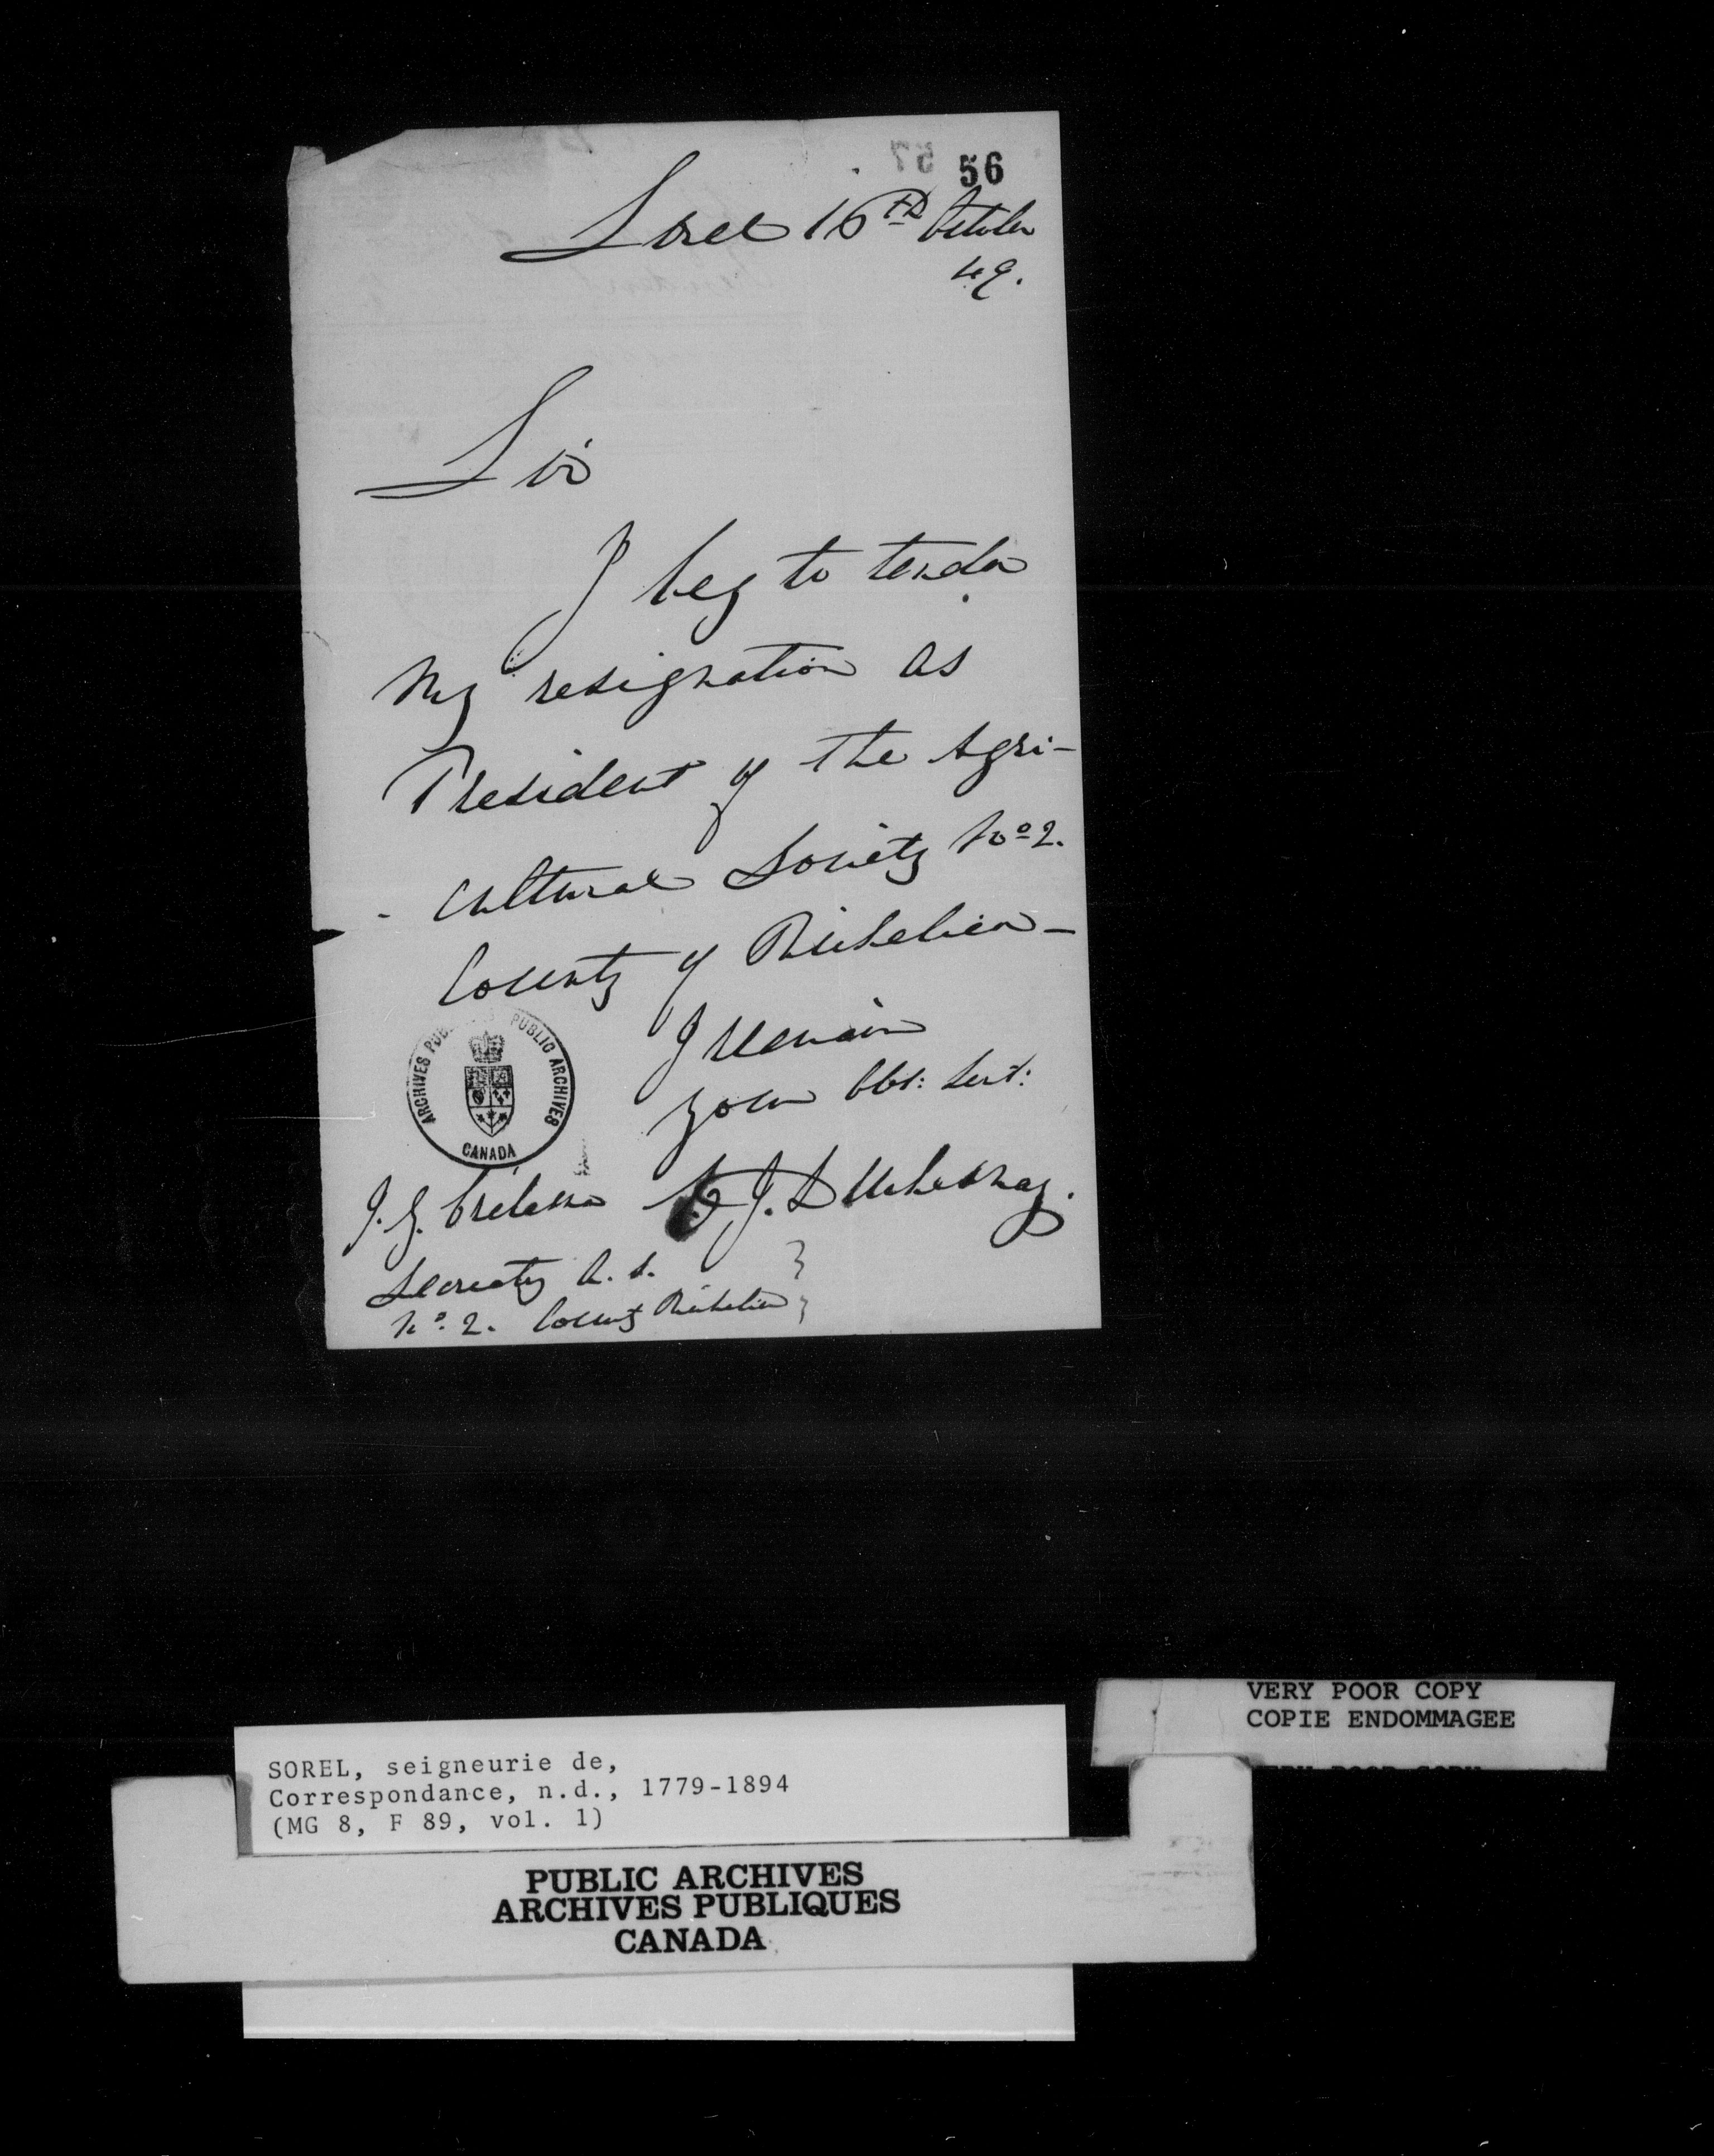 56
Sorel 16th October
49.
Sir
I beg to tender
my resignation as
President of the Agri-
- cultural Society No 2.
County of Richelieu -
I remain
your Obt: Sert:
J. G. Crébassa
Secreaty A. S.
No. 2. County Richelieu
ARCHIVES PUBLIQUES PUBLIC ARCHIVES
CANADA
VERY POOR COPY
COPIE ENDOMMAGEE
SOREL, seigneurie de,
Correspondance, n.d., 1779-1894
(MG 8, F 89, vol. 1)
PUBLIC ARCHIVES
ARCHIVES PUBLIQUES
CANADA